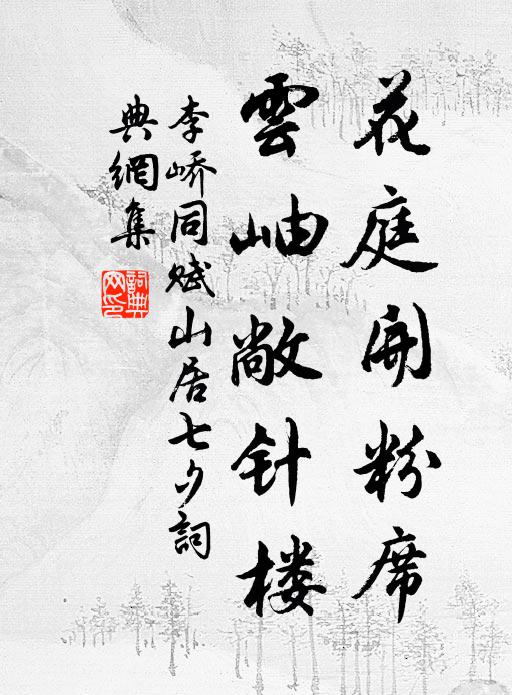 花庭開粉席
雲岫敞针楼
李嶠同赋山居七夕詞
典網集
詞典網印